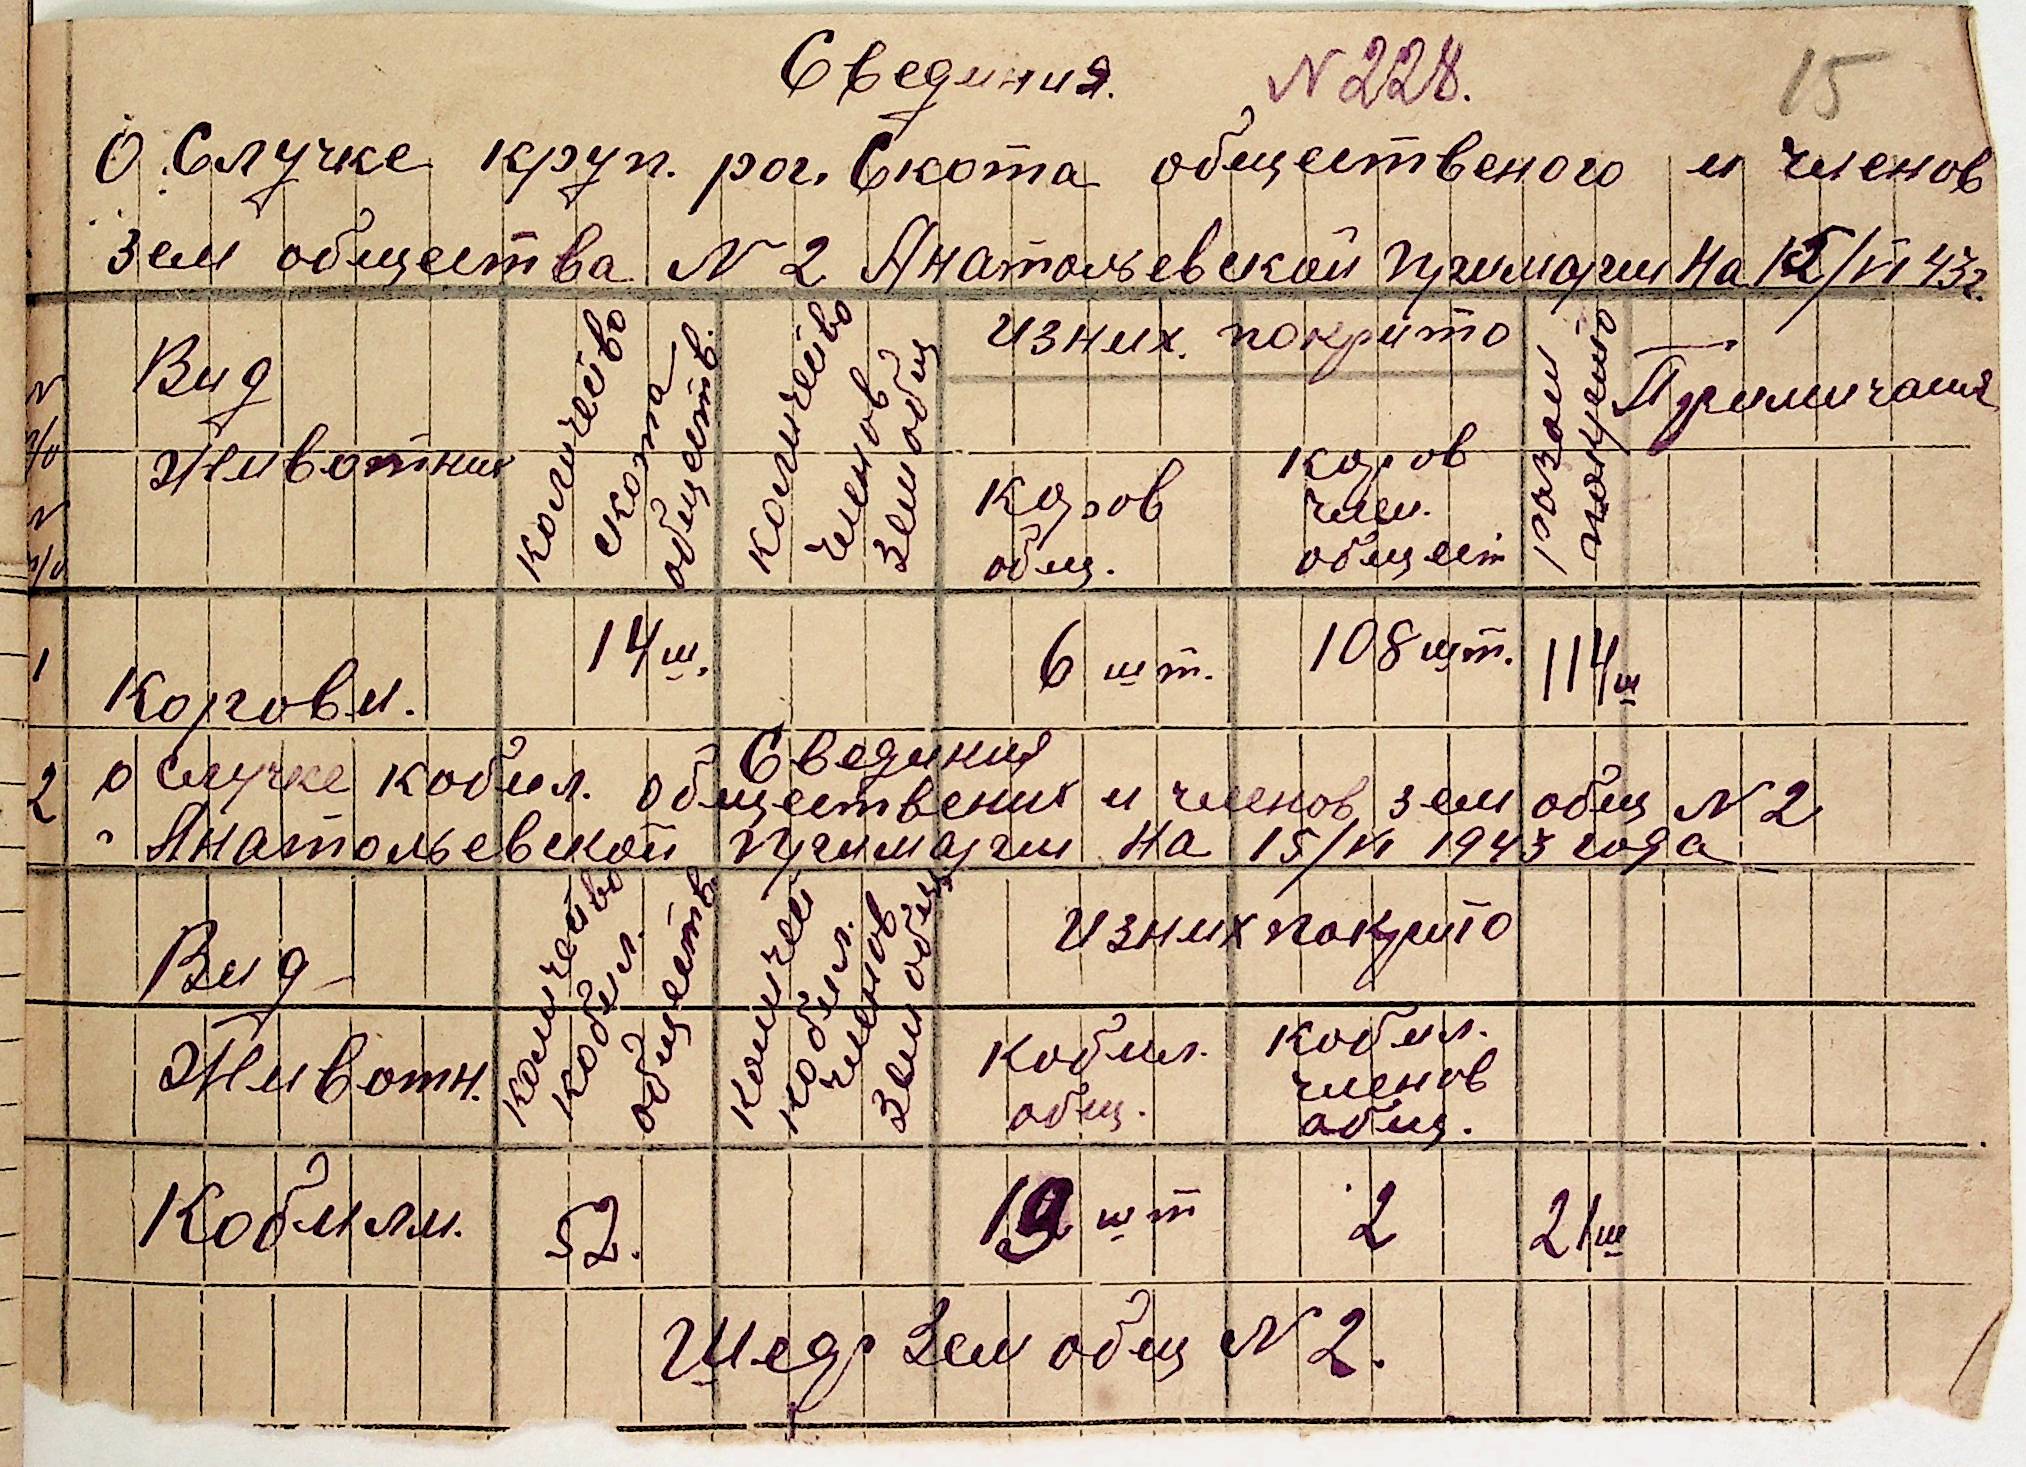 Свединия. N 228. 15
О Случке круп. рог. Скота общественого и членов
зем общества N 2 Анатольевской примарии на 15/VI 43г.
N п/о N п/о
Вид
Животних
количество скота обществ.
количество членов зем общ
из них. покрито
коров
общ.
коров
член.
общест
разом покрито
Примичания
1 Корови. 14 ш. 6 шт. 108 шт. 114 ш
2 Свединия
о случке кобил. обществених и членов зем общ N 2
Анатольевской примарии на 15/VI 1943 года
Вид
Животн.
количество кобил. обществ
количест кобил. членов зем общ
из них покрито
кобил.
общ.
кобил.
членов
общ.
Кобили. 52. 19 шт 2 21 ш
Шедр Зем общ N 2.